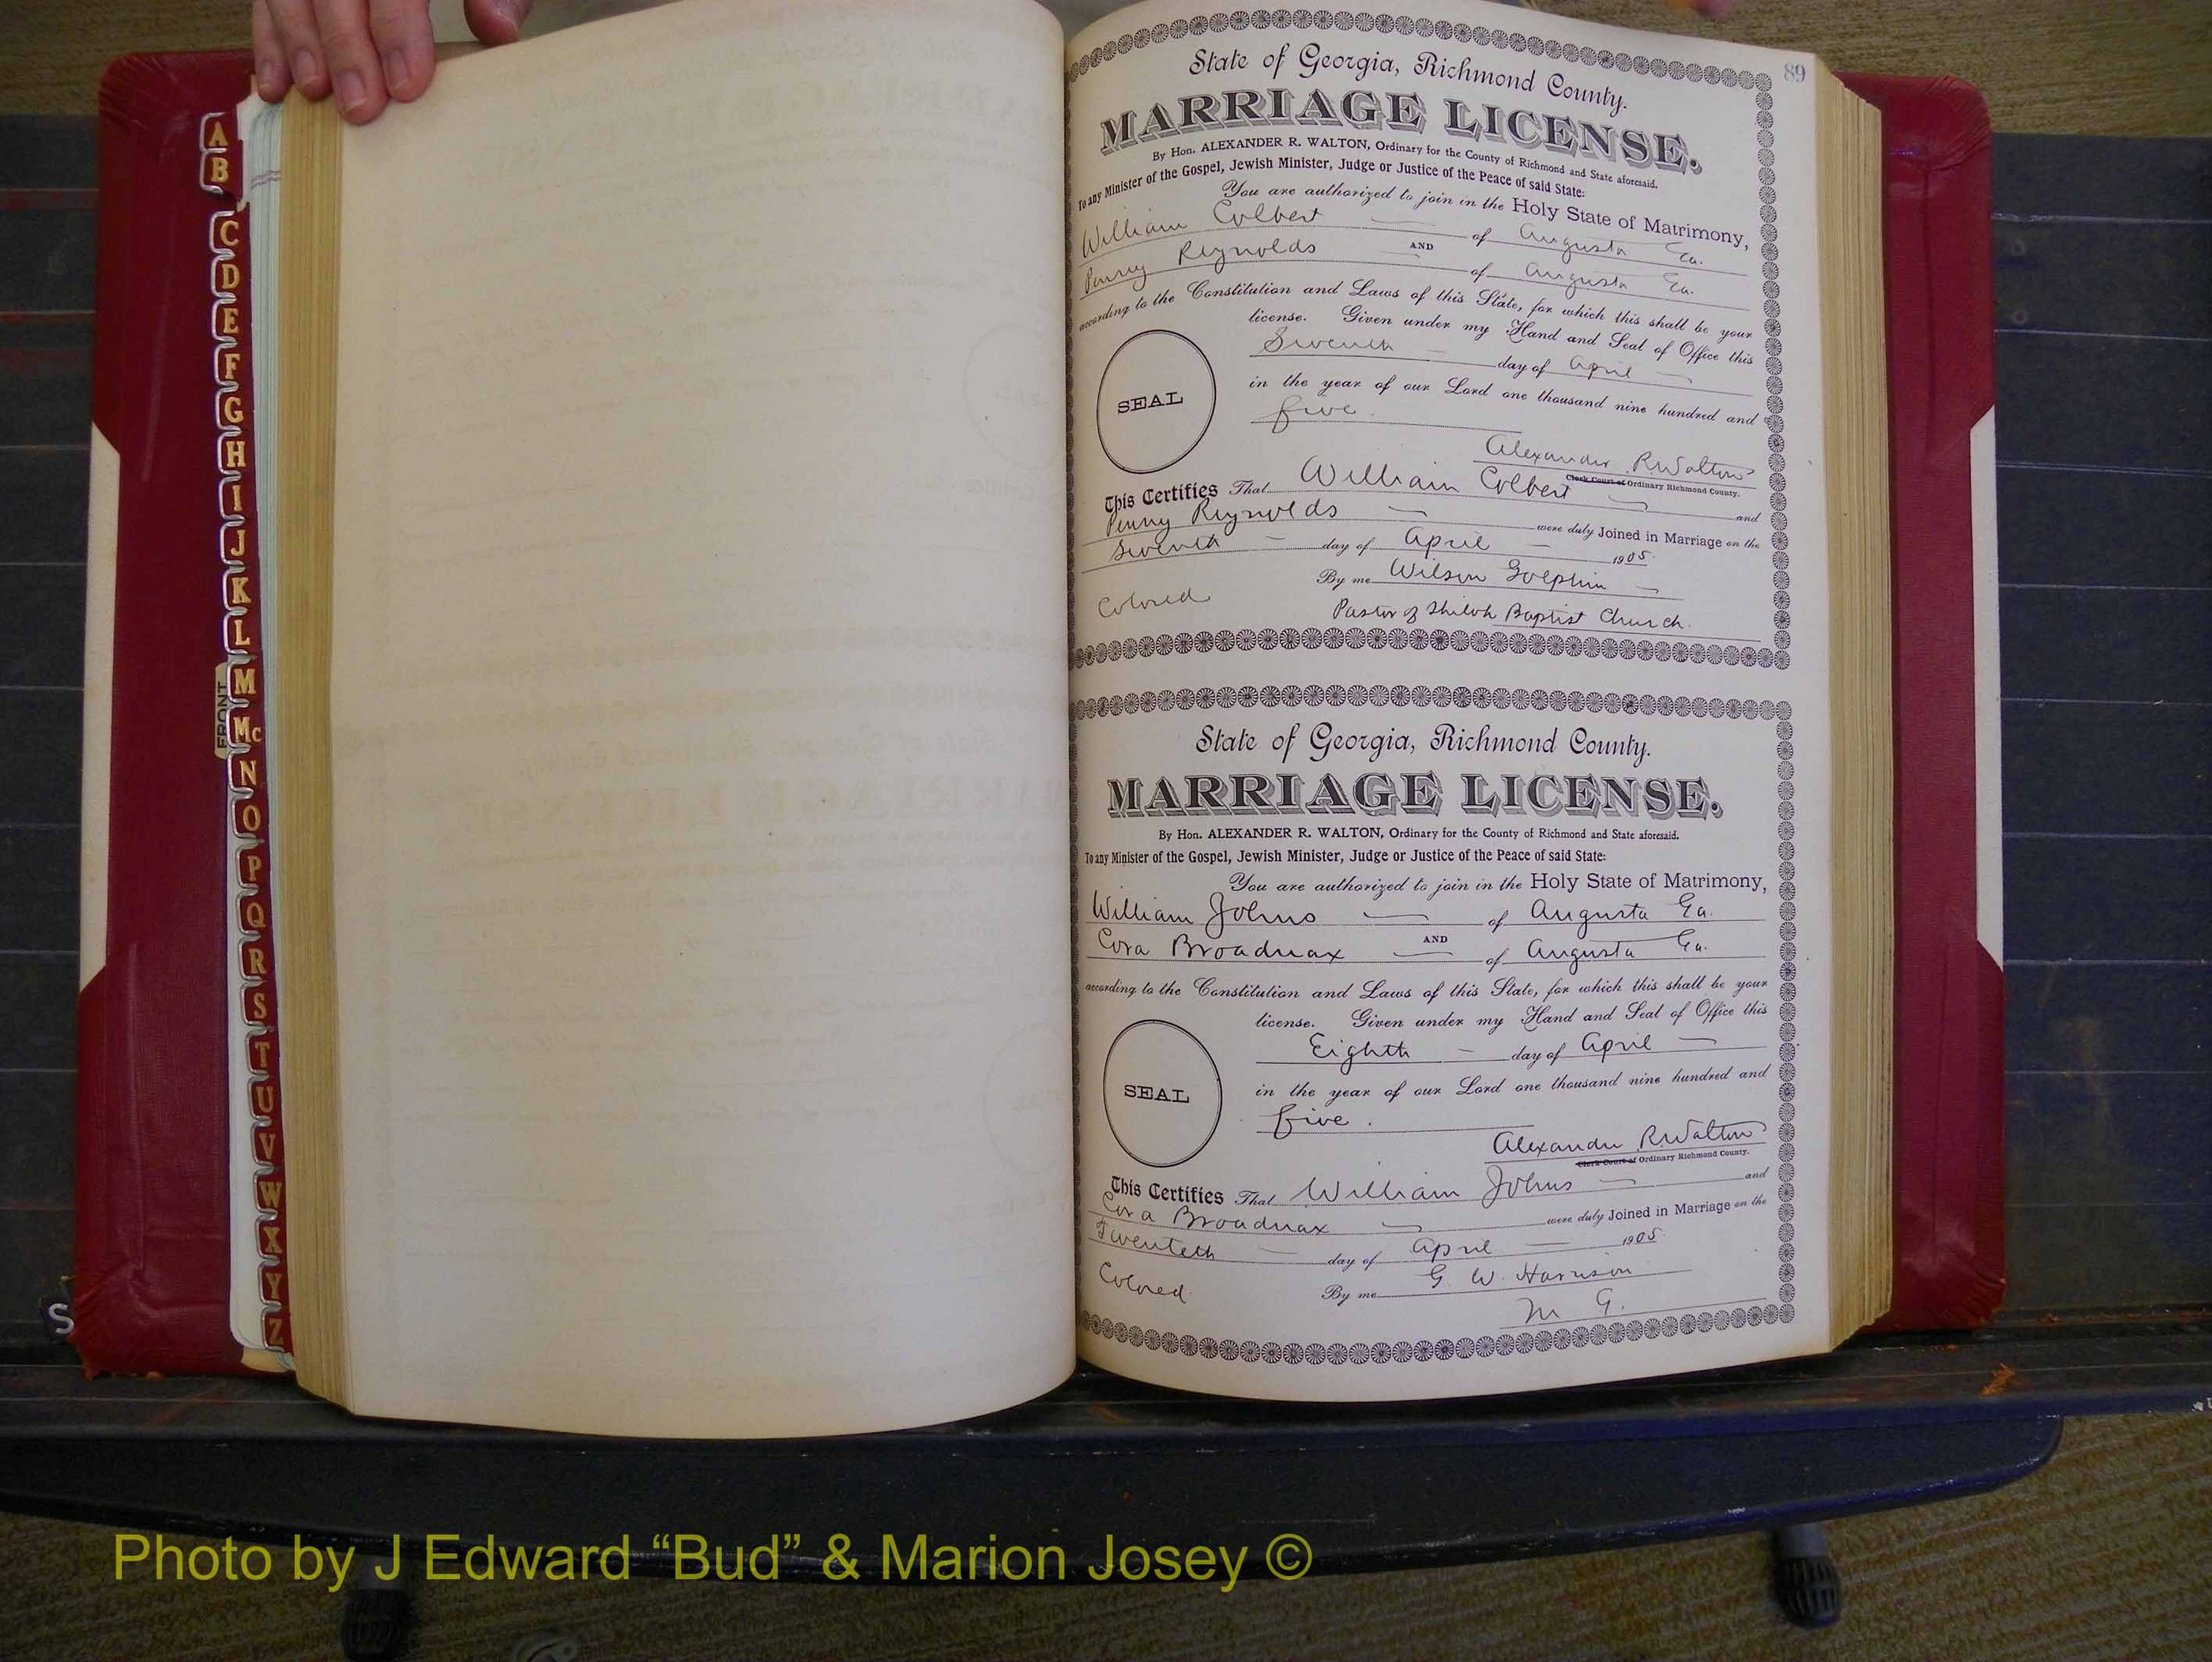 A
B
C
D
E
F
G
H
I
J
K
L
M
Mc
N
O
P
Q
R
S
T
U
V
W
X
Y
Z
FRONT
S
89
State of Georgia, Richmond County.
MARRIAGE LICENSE.
By Hon. ALEXANDER R. WALTON, Ordinary for the County of Richmond and State aforesaid.
To any Minister of the Gospel, Jewish Minister, Judge or Justice of the Peace of said State:
You are authorized to join in the Holy State of Matrimony,
William Colbert of Augusta Ga.
AND
Penny Reynolds of Augusta Ga.
according to the Constitution and Laws of this State, for which this shall be your
license. Given under my Hand and Seal of Office this
Seventh day of April
in the year of our Lord one thousand nine hundred and
five.
SEAL
Alexander R Walton
Clerk Court of Ordinary Richmond County.
This Certifies That William Colbert and
Penny Reynolds were duly Joined in Marriage on the
Seventh day of April 1905.
By me Wilson Golphin
Colored
Pastor of Shiloh Baptist Church.
State of Georgia, Richmond County.
MARRIAGE LICENSE.
By Hon. ALEXANDER R. WALTON, Ordinary for the County of Richmond and State aforesaid.
To any Minister of the Gospel, Jewish Minister, Judge or Justice of the Peace of said State:
You are authorized to join in the Holy State of Matrimony,
William Johns of Augusta Ga.
AND
Cora Broadnax of Augusta Ga.
according to the Constitution and Laws of this State, for which this shall be your
license. Given under my Hand and Seal of Office this
Eighth day of April
in the year of our Lord one thousand nine hundred and
five.
SEAL
Alexander R. Walton
Clerk Court of Ordinary Richmond County.
This Certifies That William Johns and
Cora Broadnax were duly Joined in Marriage on the
Twenteth day of April 1905.
Colored.
By me G. W. Harrison
M G.
Photo by J Edward “Bud” & Marion Josey ©